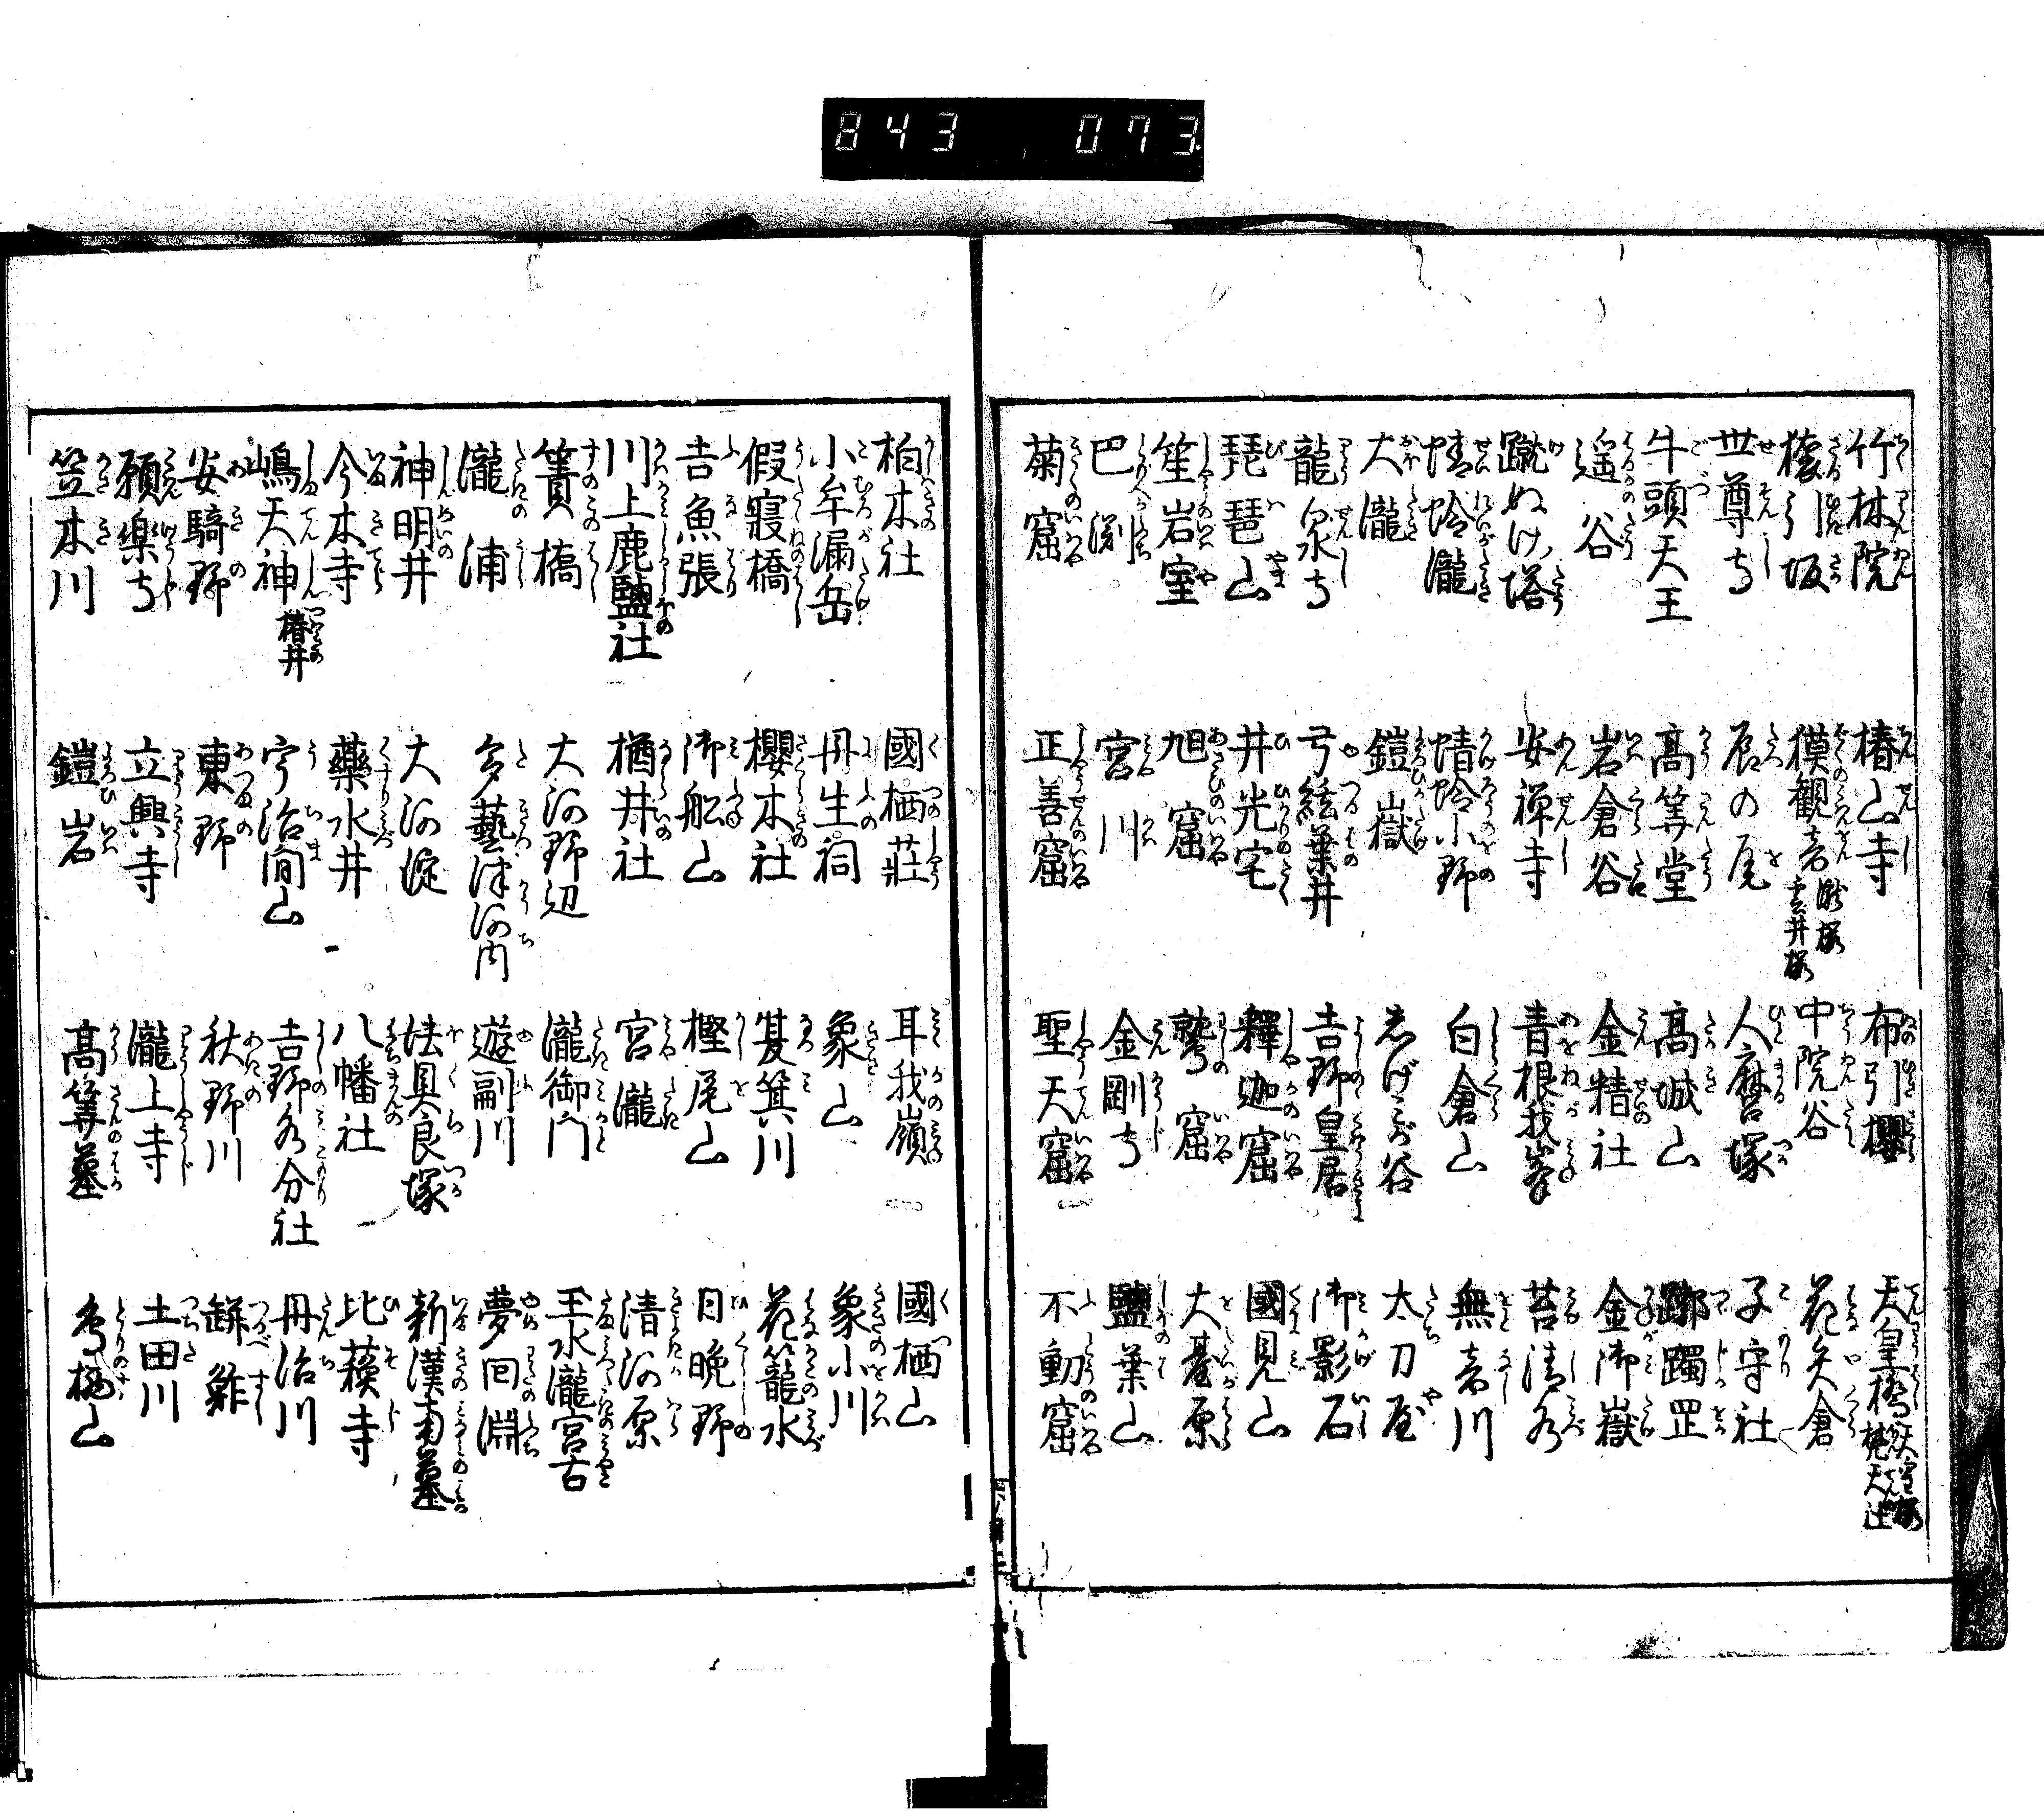 843 073
竹林院 椿山寺 布引櫻 天皇橋 天宝桜 梵天社
猿引坂 摸観音 瀧桜 雲井桜 中院谷 花矢倉
世尊寺 辰の尾 人麿塚 子守社
牛頭天王 高筭堂 高城山 躑躅罡
遥谷 岩倉谷 金精社 金御嶽
蹴ぬけ塔 安禅寺 青根我峯 苔清水
蜻蛉瀧 蜻蛉小野 白倉山 無音川
大瀧 鎧嶽 志げミが谷 太刀屋
龍泉寺 弓絃葉井 吉野皇居 御影石
琵琶山 井光宅 釋迦窟 國見山
笙岩室 旭窟 鷲窟 大基原
巴渕 宮川 金剛寺 鹽葉山
菊窟 正善窟 聖天窟 不動窟
柏木社 國栖莊 耳我嶺 國栖山
小牟漏岳 丹生祠 象山 象小川
假寢橋 櫻木社 夑箕川 花籠水
吉魚張 御舩山 樫尾山 日晩野
川上鹿鹽社 楢井社 宮瀧 清河原
簀橋 大河野辺 瀧御門 玉水瀧宮古
瀧浦 多藝津河内 遊副川 夢回淵
神明井 大河淀 法具良塚 新漢南墓
今木寺 藥水井 八幡社 比蘓寺
嶋天神 椿井 宇治間山 吉野水分社 丹治川
安騎野 東野 秋野川 釣瓶鮓
願樂寺 立興寺 瀧上寺 土田川
笠木川 鎧岩 高筭墓 鳥栖山